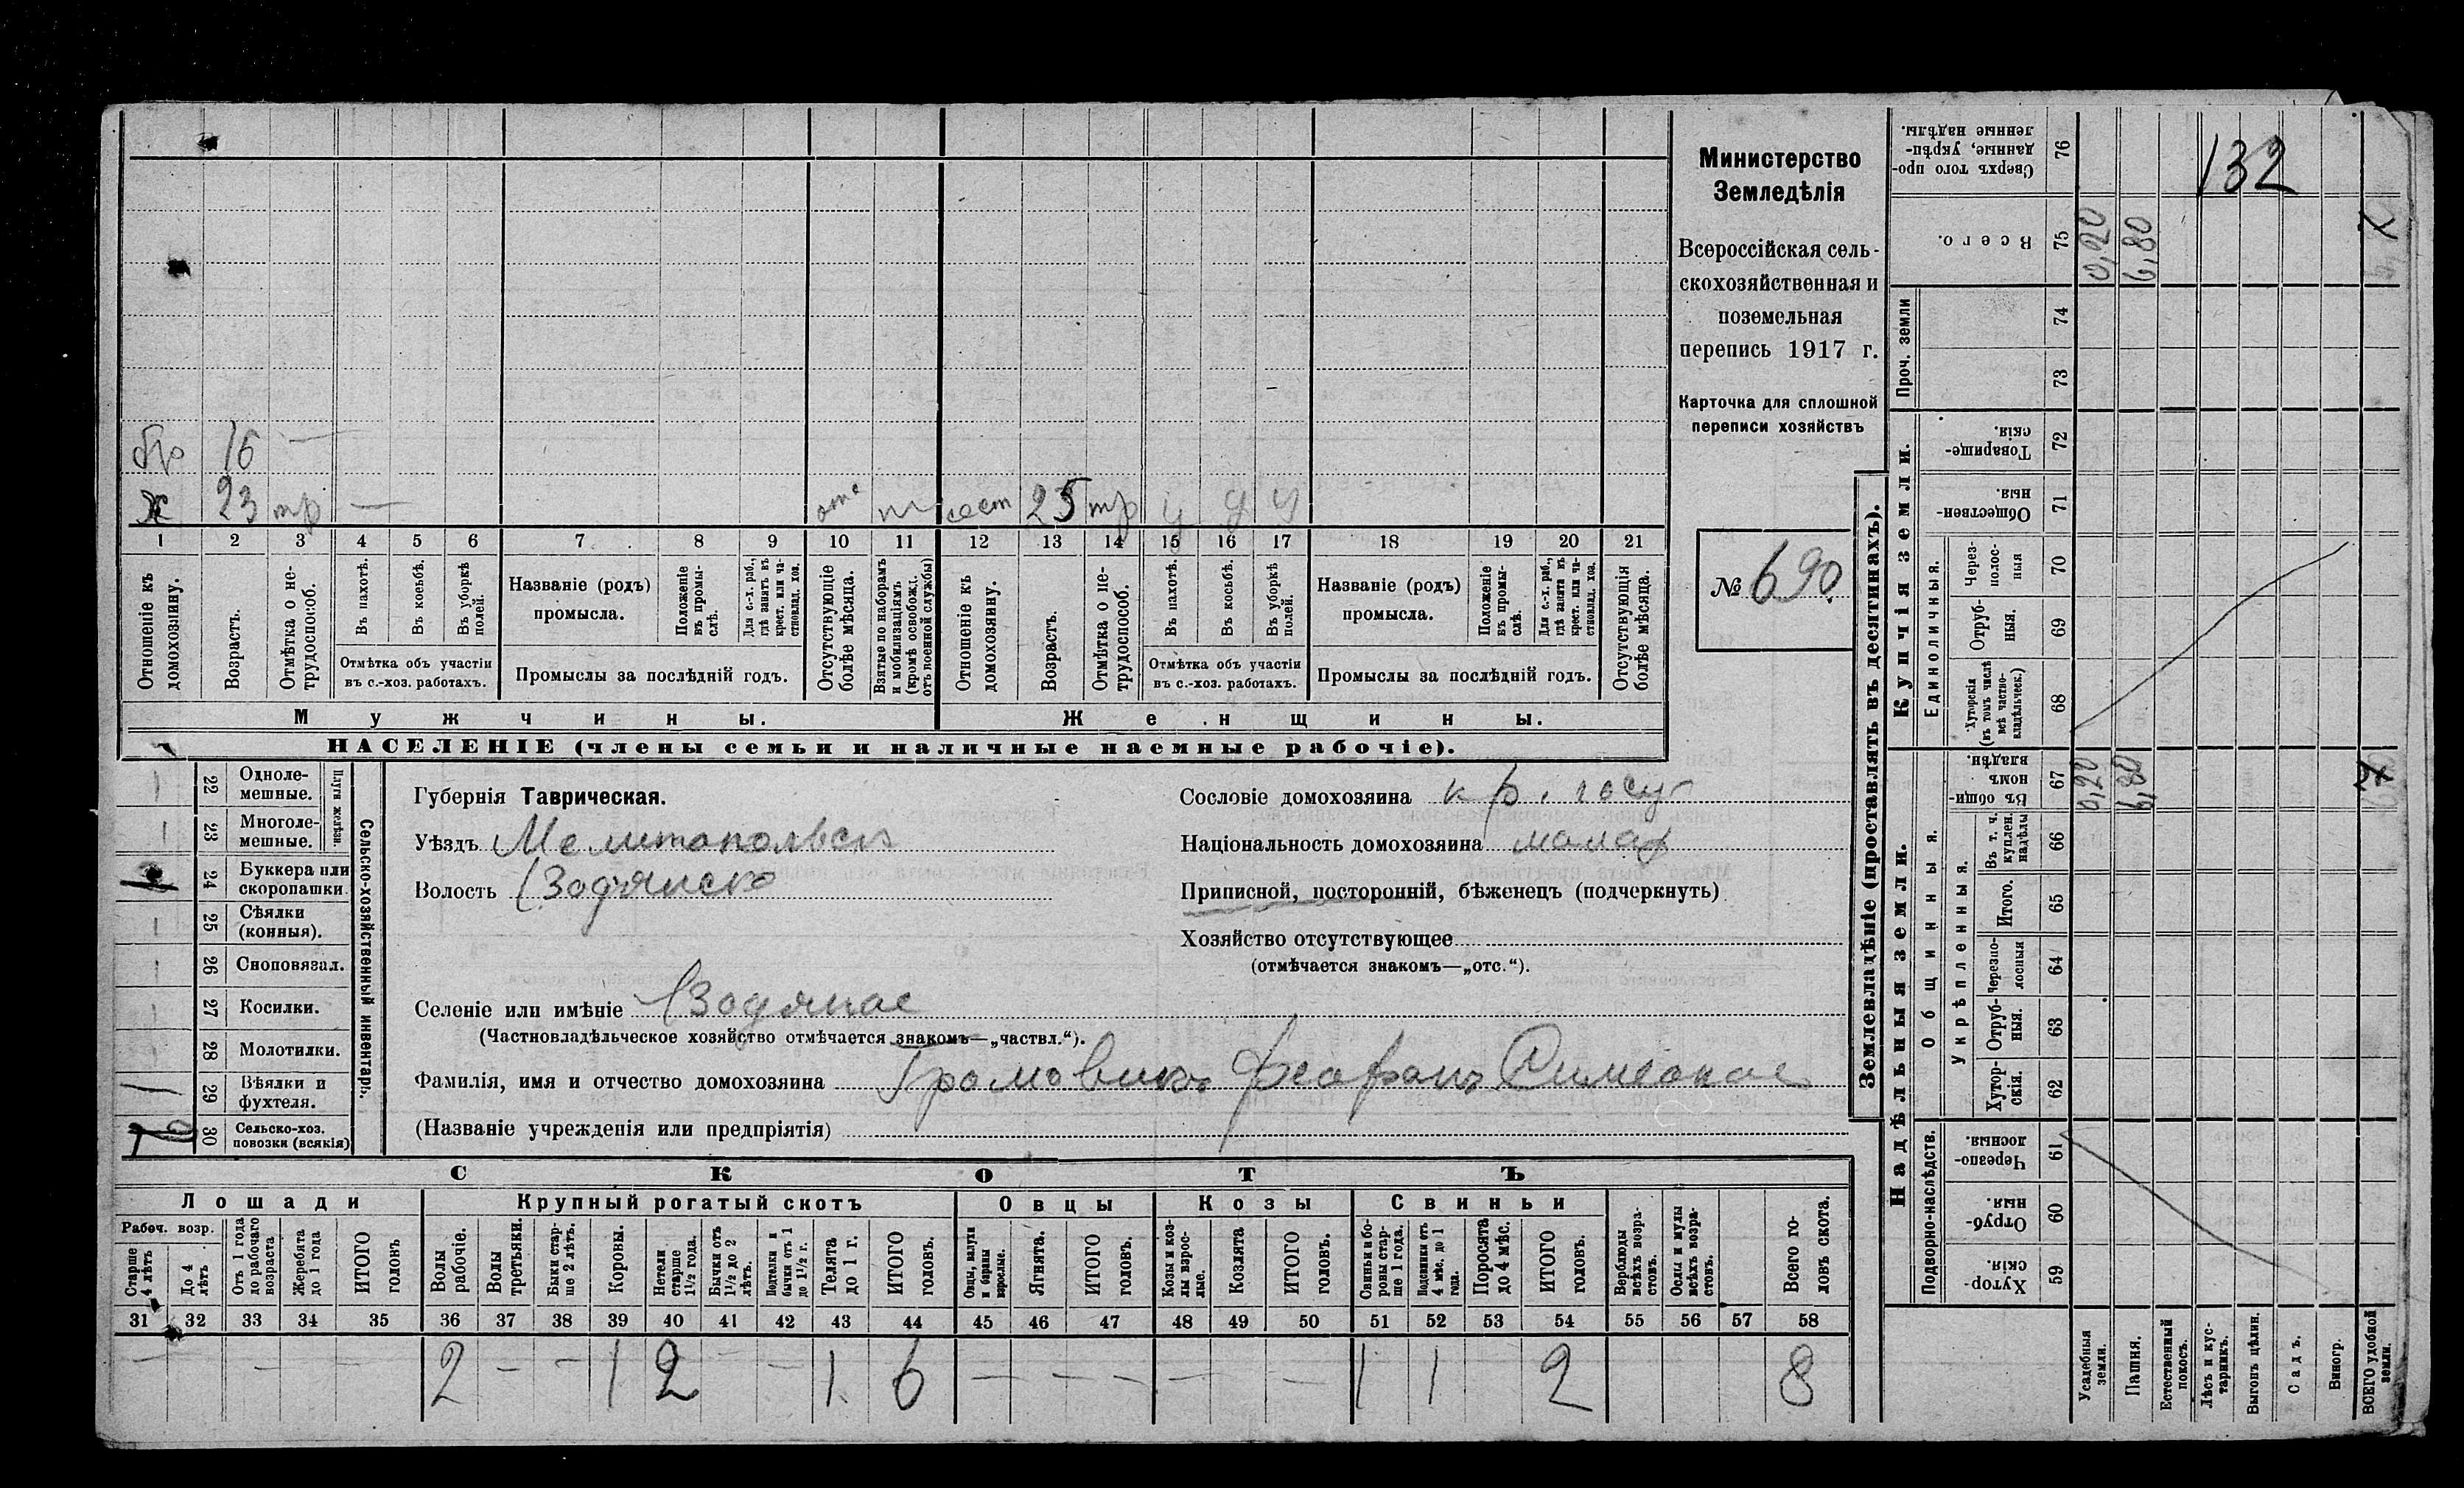 бр 16 —
Х 23 тр — отс сест 25 тр у у у
1 2 3 4 5 6 7 8 9 10 11 12 13 14 15 16 17 18 19 20 21
Отношеніе къ домохозяину.
Возрастъ.
Отмѣтка о не-трудоспособ.
Въ пахотѣ.
Въ косьбѣ.
Въ уборкѣ полей.
Отмѣтка объ участіи
въ с.-хоз. работахъ.
Названіе (родъ)
промысла.
Положеніе въ промы-слѣ.
Для с.-х. раб., гдѣ занятъ въ крест. или ча-стновлад. хоз.
Промыслы за послѣдній годъ.
Отсутствующіе болѣе мѣсяца.
Взятые по наборамъ и мобилизаціямъ (кромѣ освобожд. отъ военной службы)
Отношеніе къ домохозяину.
Возрастъ.
Отмѣтка о не-трудоспособ.
Въ пахотѣ.
Въ косьбѣ.
Въ уборкѣ полей.
Отмѣтка объ участіи
въ с.-хоз. работахъ.
Названіе (родъ)
промысла.
Положеніе въ промы-слѣ.
Для с.-х. раб., гдѣ занята въ крест. или ча-стновлад. хоз.
Промыслы за послѣдній годъ.
Отсутствующія болѣе мѣсяца.
Мужчины.
Женщины.
НАСЕЛЕНІЕ (члены семьи и наличные наемные рабочіе).
Министерство
Земледѣлія
Всероссійская сель-
скохозяйственная и
поземельная
перепись 1917 г.
Карточка для сплошной
переписи хозяйствъ
№ 690
22 Одноле-
мешные.
23 Многоле-
мешные.
Плуги желѣзн.
24 Буккера или
скоропашки.
25 Сѣялки
(конныя).
26 Сноповязал.
27 Косилки.
28 Молотилки.
29 Вѣялки и
фухтеля.
30 Сельско-хоз.
повозки (всякія)
Сельско-хозяйственный инвентарь.
Губернія Таврическая.
Уѣздъ Мелитопольск
Волость Водянско
Селеніе или имѣніе Водяное
(Частновладѣльческое хозяйство отмѣчается знакомъ—„частвл.“).
Фамилія, имя и отчество домохозяина Громовикъ Феофанъ Симеонов
(Названіе учрежденія или предпріятія)
Сословіе домохозяина кр. госу
Національность домохозяина малор
Приписной, посторонній, бѣженецъ (подчеркнуть)
Хозяйство отсутствующее
(отмѣчается знакомъ—„отс.“).
СКОТЪ
Лошади Крупный рогатый скотъ Овцы Козы Свиньи
Рабоч. возр.
Старше 4 лѣтъ
До 4 лѣтъ
Отъ 1 года до рабочаго возраста
Жеребята до 1 года
ИТОГО головъ
Волы рабочіе.
Волы третьяки.
Быки стар-ше 2 лѣтъ.
Коровы.
Нетели старше 1½ года.
Бычки отъ 1½ до 2 лѣтъ.
Подтелки и бычки отъ 1 до 1½ г.
Телята до 1 г.
ИТОГО головъ.
Овцы, валухи и бараны взрослые.
Ягнята.
ИТОГО головъ.
Козы и коз-лы взрос-лые.
Козлята
ИТОГО головъ.
Свиньи и бо-ровы стар-ше 1 года.
Подсвинки отъ 4 мѣс. до 1 года.
Поросята до 4 мѣс.
ИТОГО головъ.
Верблюды всѣхъ возра-стовъ.
Ослы и мулы всѣхъ возра-стовъ.
Всего го-ловъ скота.
31 32 33 34 35 36 37 38 39 40 41 42 43 44 45 46 47 48 49 50 51 52 53 54 55 56 57 58
— — — 2 — — 1 2 — — 1 6 — — — — — 1 1 2 8
Землевладѣніе (проставлять въ десятинахъ).
Надѣльныя земли.
Купчія земли.
Проч. земли
Подворно-наслѣдств.
Общинныя.
Укрѣпленныя.
Единоличныя.
Хутор-скія. 59
Отруб-ныя. 60
Черезпо-лосныя. 61
Хутор-скія. 62
Отруб-ныя. 63
Черезпо-лосныя 64
Итого. 65
Въ т. ч. куплен. надѣлы 66
Въ общин-номъ владѣн. 67 0,20 6,80
Хуторскія (въ томъ числѣ всѣ частно-владѣльческ.) 68
Отруб-ныя. 69
Через-полос-ныя 70
Обществен-ныя. 71
Товарище-скія. 72
73
74
Всего. 75 0,20 6,80
Сверхъ того про-данные, укрѣп-ленные надѣлы. 76
132
Усадебныя земли.
Пашня.
Естественный покосъ.
Лѣсъ и кус-тарникъ.
Выгонъ цѣлин.
Садъ.
Виногр.
ВСЕГО удобной земли.